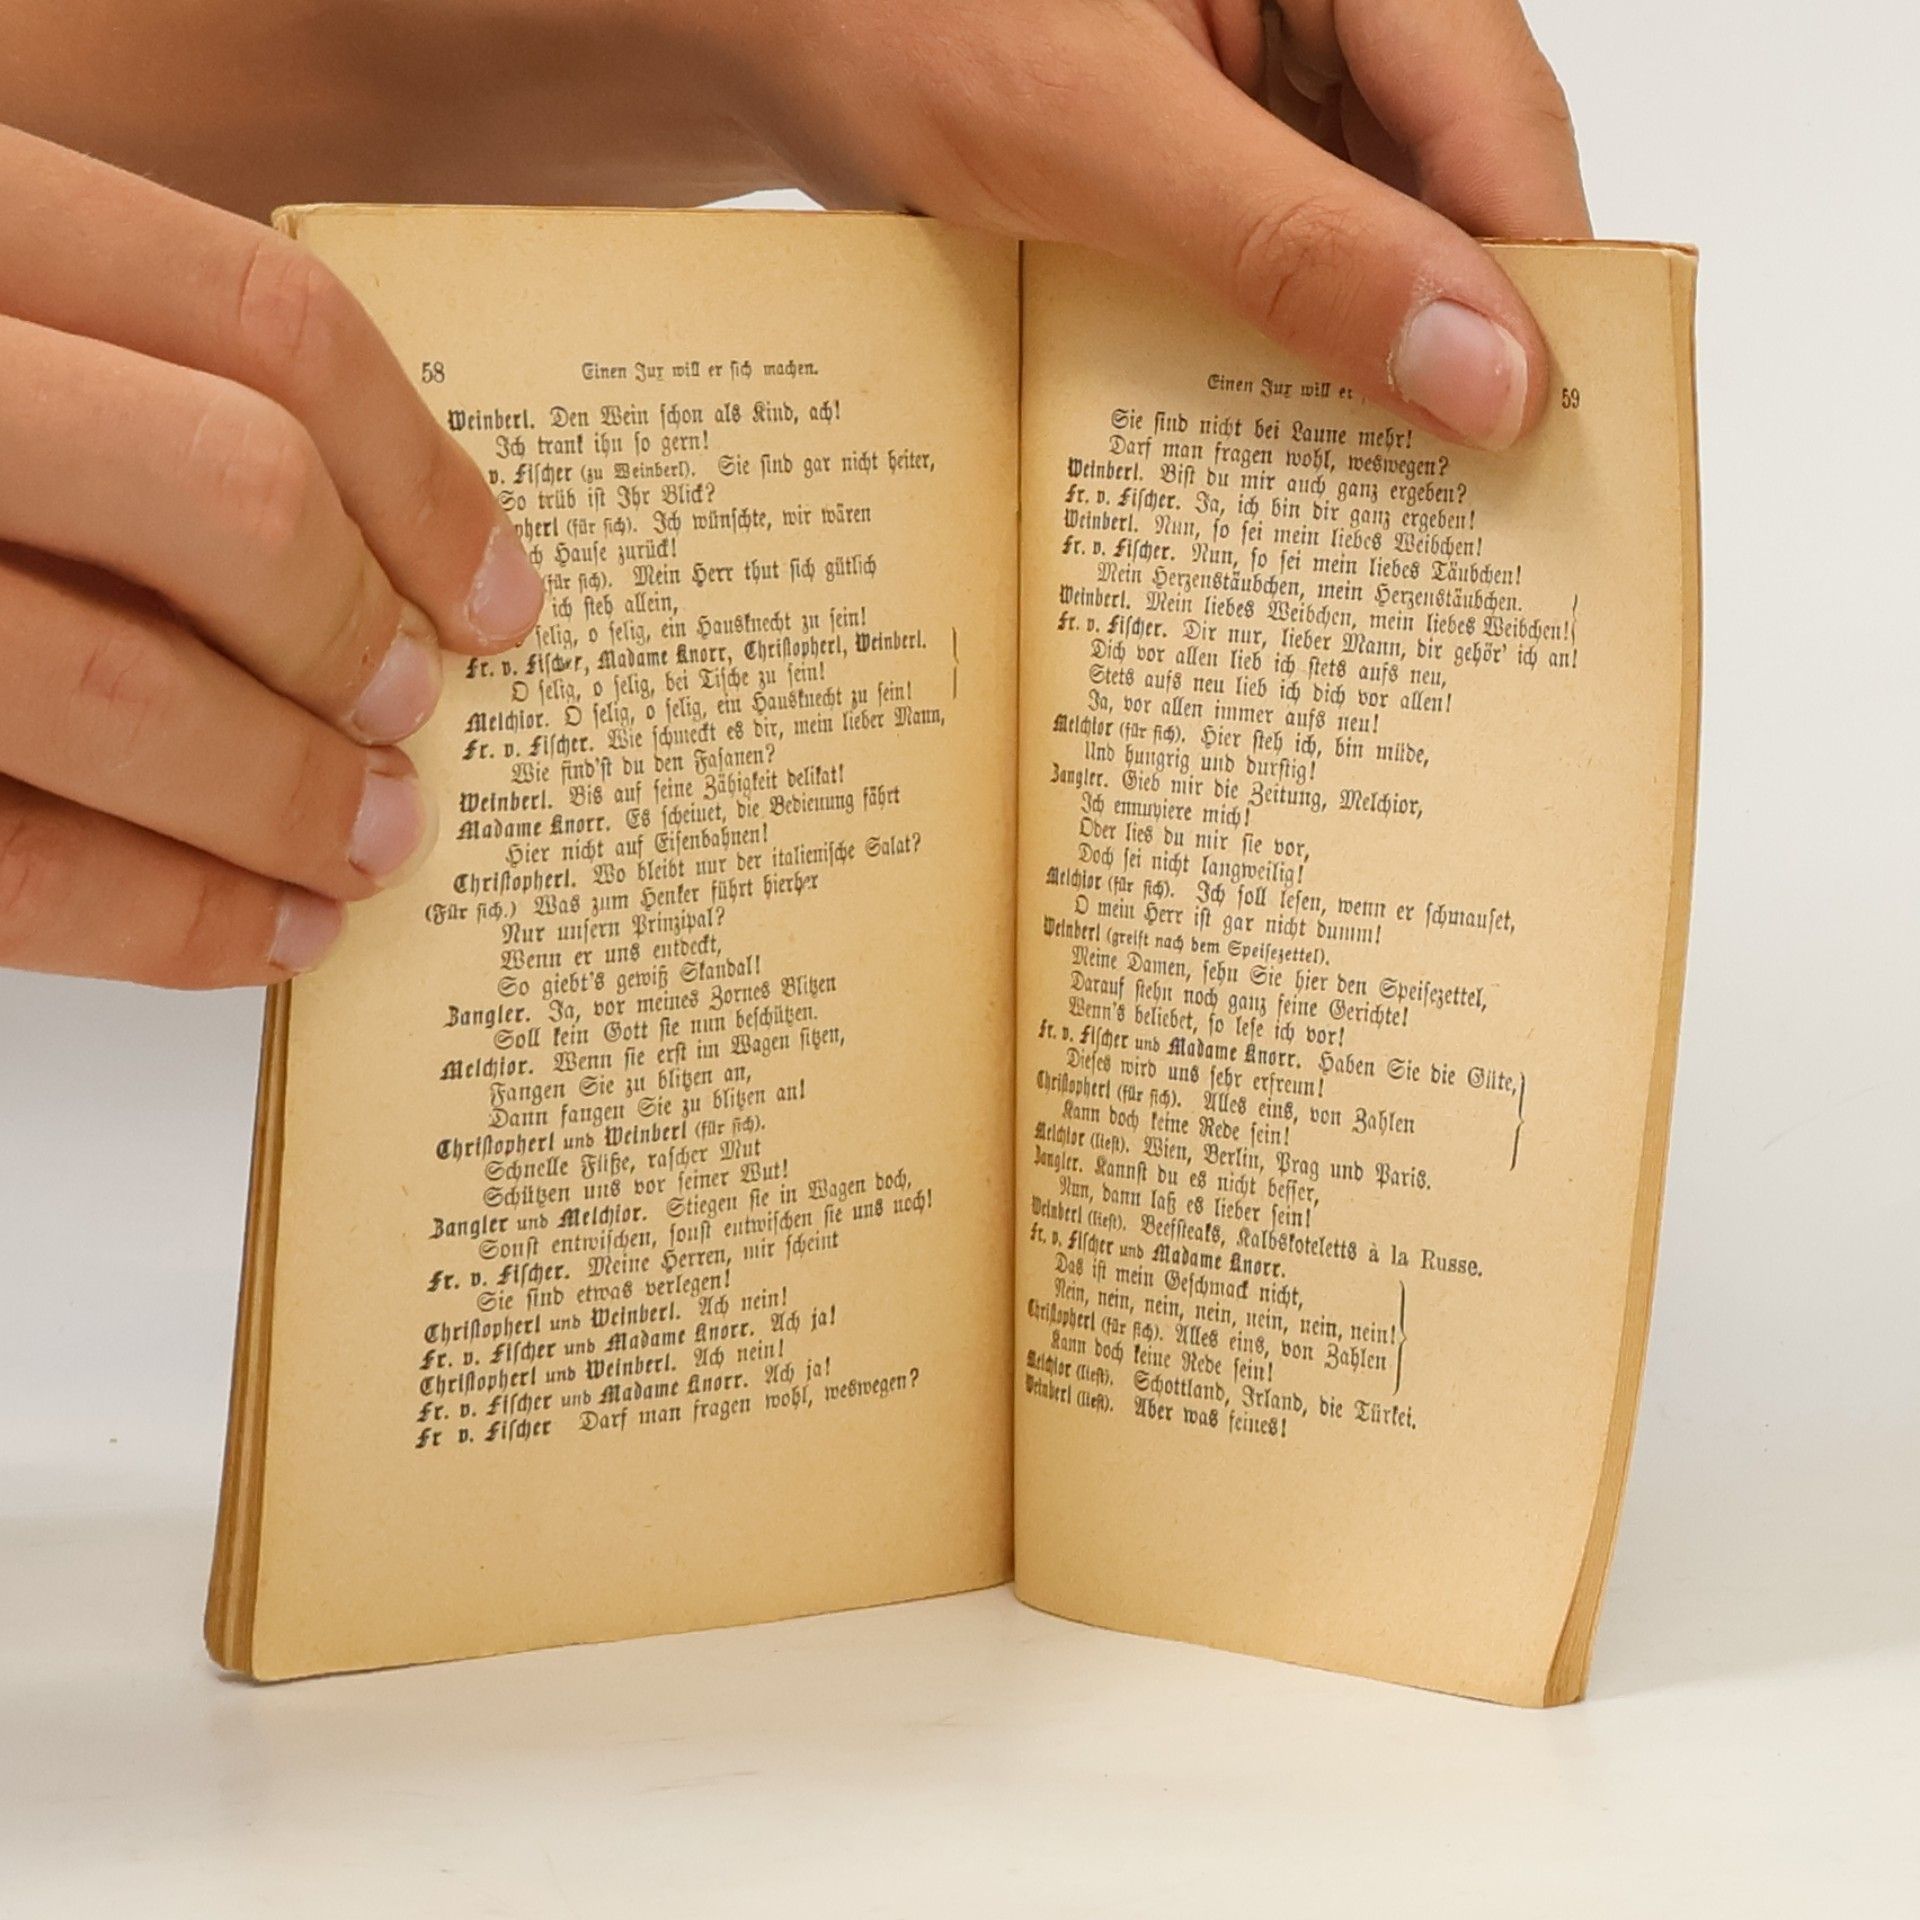 58 Einen Jux will er sich machen.
Weinberl. Den Wein schon als Kind, ach!
Ich trank ihn so gern!
v. Fischer (zu Weinberl). Sie sind gar nicht heiter,
So trüb ist Ihr Blick?
pherl (für sich). Ich wünschte, wir wären
ch Hause zurück!
(für sich). Mein Herr thut sich gütlich
ich steh allein,
selig, o selig, ein Hausknecht zu sein!
Fr. v. Fischer, Madame Knorr, Christopherl, Weinberl.
O selig, o selig, bei Tische zu sein!
Melchior. O selig, o selig, ein Hausknecht zu sein!
Fr. v. Fischer. Wie schmeckt es dir, mein lieber Mann,
Wie find'st du den Fasanen?
Weinberl. Bis auf seine Zähigkeit delikat!
Madame Knorr. Es scheinet, die Bedienung fährt
Hier nicht auf Eisenbahnen!
Christopherl. Wo bleibt nur der italienische Salat?
(Für sich.) Was zum Henker führt hierher
Nur unsern Prinzipal?
Wenn er uns entdeckt,
So giebt's gewiß Skandal!
Zangler. Ja, vor meines Zornes Blitzen
Soll kein Gott sie nun beschützen.
Melchior. Wenn sie erst im Wagen sitzen,
Fangen Sie zu blitzen an,
Dann fangen Sie zu blitzen an!
Christopherl und Weinberl (für sich).
Schnelle Füße, rascher Mut
Schützen uns vor seiner Wut!
Zangler und Melchior. Stiegen sie in Wagen doch,
Sonst entwischen, sonst entwischen sie uns noch!
Fr. v. Fischer. Meine Herren, mir scheint
Sie sind etwas verlegen!
Christopherl und Weinberl. Ach nein!
Fr. v. Fischer und Madame Knorr. Ach ja!
Christopherl und Weinberl. Ach nein!
Fr. v. Fischer und Madame Knorr. Ach ja!
Fr v. Fischer Darf man fragen wohl, weswegen?
Einen Jux will er 59
Sie sind nicht bei Laune mehr!
Darf man fragen wohl, weswegen?
Weinberl. Bist du mir auch ganz ergeben?
Fr. v. Fischer. Ja, ich bin dir ganz ergeben!
Weinberl. Nun, so sei mein liebes Weibchen!
Fr. v. Fischer. Nun, so sei mein liebes Täubchen!
Mein Herzenstäubchen, mein Herzenstäubchen.
Weinberl. Mein liebes Weibchen, mein liebes Weibchen!
Fr. v. Fischer. Dir nur, lieber Mann, dir gehör' ich an!
Dich vor allen lieb ich stets aufs neu,
Stets aufs neu lieb ich dich vor allen!
Ja, vor allen immer aufs neu!
Melchior (für sich). Hier steh ich, bin müde,
Und hungrig und durstig!
Zangler. Gieb mir die Zeitung, Melchior,
Ich ennuyiere mich!
Oder lies du mir sie vor,
Doch sei nicht langweilig!
Melchior (für sich). Ich soll lesen, wenn er schmauset,
O mein Herr ist gar nicht dumm!
Weinberl (greift nach dem Speisezettel).
Meine Damen, sehn Sie hier den Speisezettel,
Darauf stehn noch ganz feine Gerichte!
Wenn's beliebet, so lese ich vor!
Fr. v. Fischer und Madame Knorr. Haben Sie die Güte,
Dieses wird uns sehr erfreun!
Christopherl (für sich). Alles eins, von Zahlen
Kann doch keine Rede sein!
Melchior (liest). Wien, Berlin, Prag und Paris.
Zangler. Kannst du es nicht besser,
Nun, dann laß es lieber sein!
Weinberl (liest). Beefsteaks, Kalbskoteletts à la Russe.
Fr. v. Fischer und Madame Knorr.
Das ist mein Geschmack nicht,
Nein, nein, nein, nein, nein, nein, nein!
Christopherl (für sich). Alles eins, von Zahlen
Kann doch keine Rede sein!
Melchior (liest). Schottland, Irland, die Türkei.
Weinberl (liest). Aber was feines!